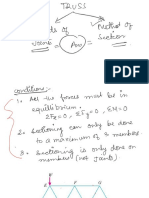 TRUSS
Method of
Section
ds of
Joint
Conditions:-
1. All the forces must be in
equilibrium.
ΣFx=0, ΣFy=0, ΣM=0
2. Sectioning can only be done
to a maximum of 3 members.
3. Sectioning is only done on
members (not Joints)